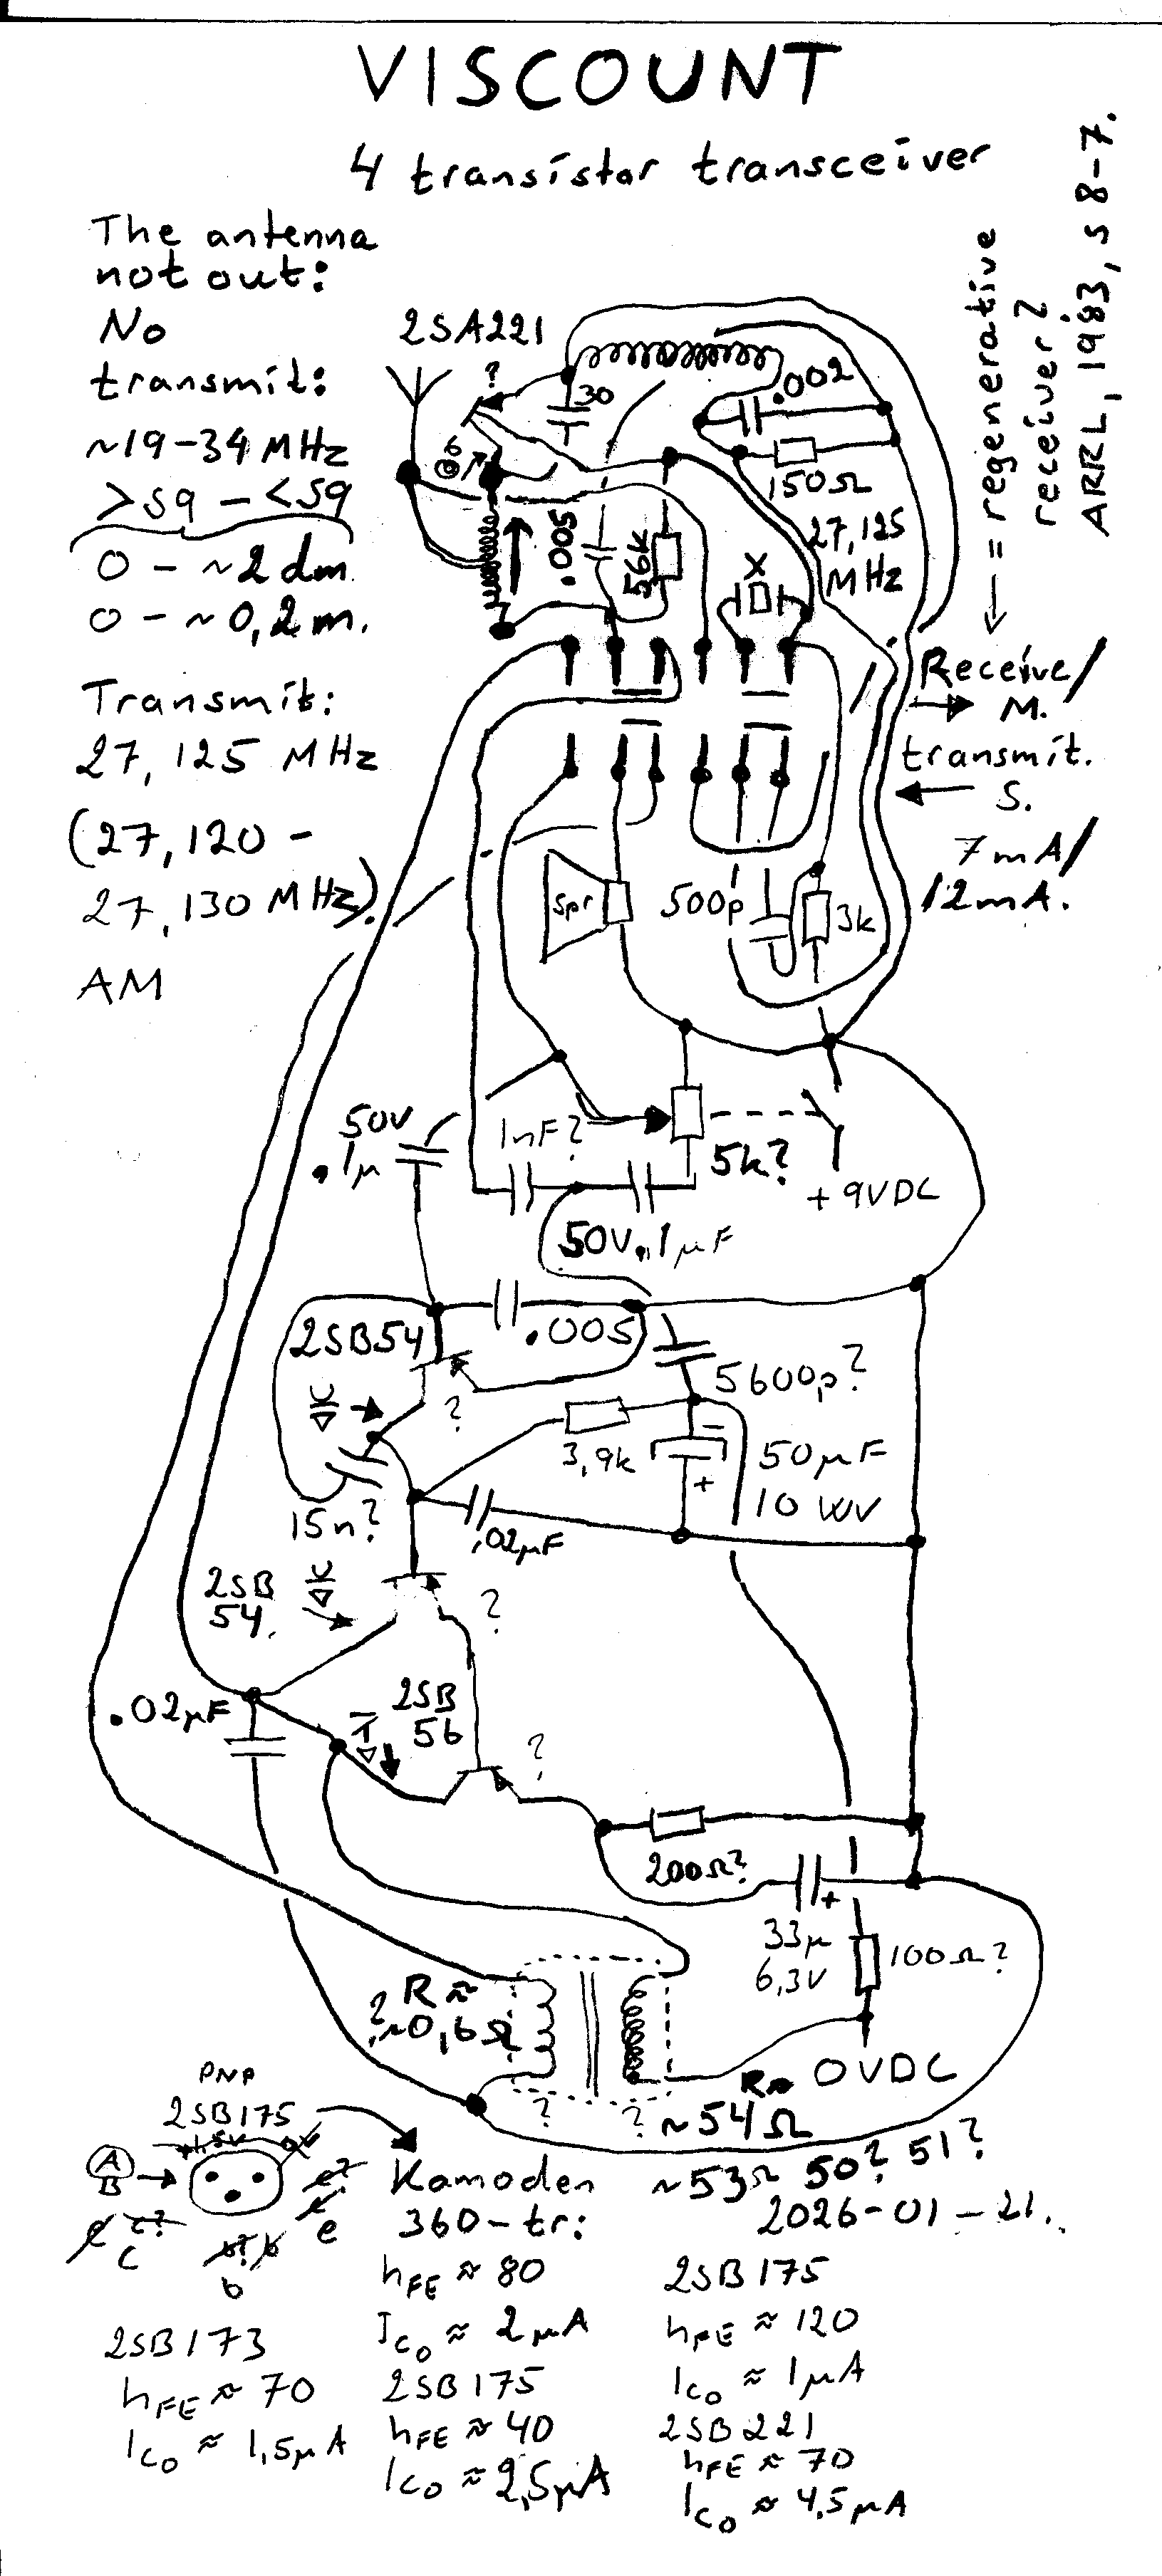 VISCOUNT
4 transistor transceiver
The antenna
not out:
No
transmit:
~19-34 MHz
>S9 - <S9
0 - ~2 dm.
0 - ~0,2 m.
Transmit:
27, 125 MHz
(27, 120 -
27, 130 MHz).
AM
= regenerative
receiver?
ARRL, 1983, s 8-7.
2SA221
?
30
.002
6
150Ω
.005
56k
X
27,125
MHz
Receive/
M.
transmit.
S.
7mA/
12mA.
Spr
500p
3k
50V
.1μ
1nF?
5k?
+9VDC
50V.,1μF
2SB54
.005
?
5600p?
3,9k
50μF
10 WV
+
15n?
,02μF
2SB
54.
?
.02μF
2SB
56
?
200Ω?
+
33μ
6,3V
100Ω?
R≈
?~0,6Ω
0VDC
R≈
~54Ω
? ?
~53Ω 50? 51?
2026-01-21.
PNP
2SB175
A
B
c
b
e
Kamoden
360-tr:
hFE ≈ 80
Ico ≈ 2μA
2SB175
hFE ≈ 40
Ico ≈ 2,5μA
2SB173
hFE ≈ 70
Ico ≈ 1,5μA
2SB175
hFE ≈ 120
Ico ≈ 1μA
2SB221
hFE ≈ 70
Ico ≈ 4,5μA